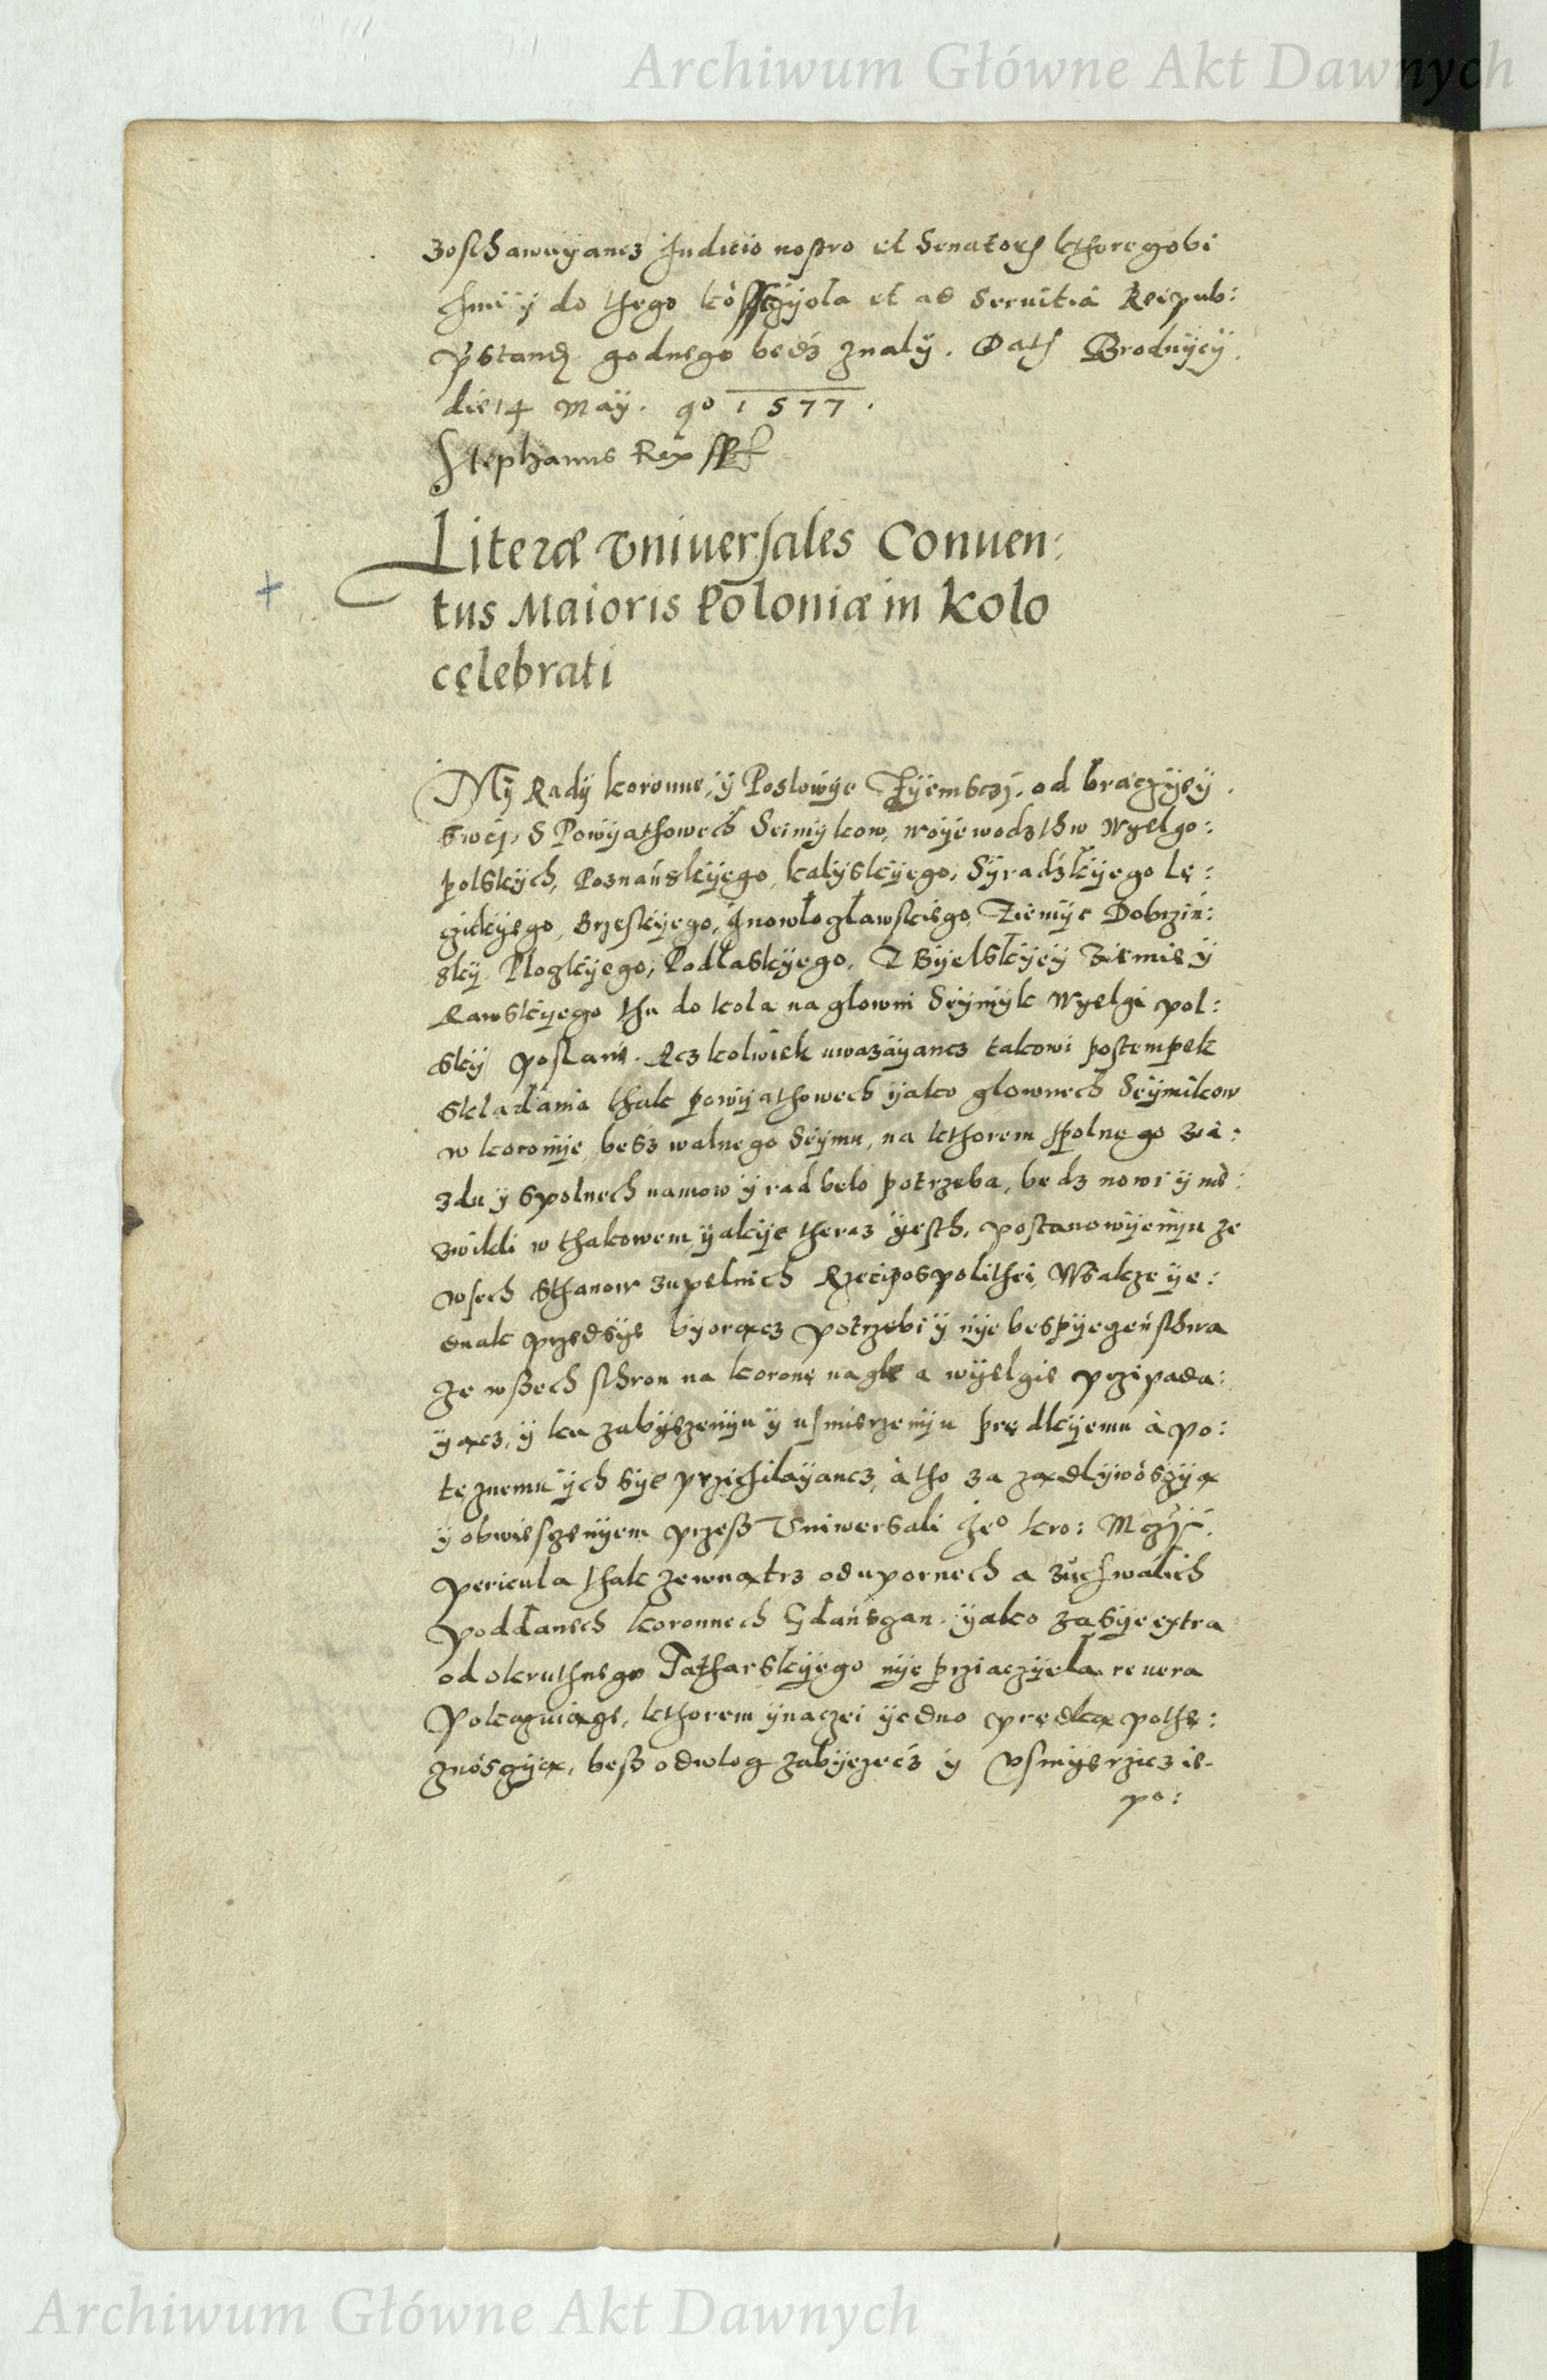 Archiwum Główne Akt Dawnych
zosthawuyancz Judicio nostro et Senatorum kthoregobi
do thego et ad seruitia Reipub:
godnego bedz znaly. Dath Brodnycy.
die 14 May. ao 1577.
Stephanus Rex sst
Literæ Vniuersales Conuen:
tus Maioris Poloniæ in Kolo
cęlebrati
My Rady koronne, y Poslowye Zyemsczy, od braczyey
swey, s Powyathowech Seimykow, woyewodzthw Wyelgo:
polskych, Poznańskyego, kalyskyego, Syradzkyego Lę:
czickyego, Brzeskyego, Jnowłogławskiego, Ziemye Dobrzin:
sky, Plozkyego, Podłaskyego, Z Byelskyey Ziemie y
Rawskyego thu do kola na głowni Seymyk Wyelgi pol:
sky poslani. Acz kolwiek uwazayancz takowi postempek
skladania thak powyathowech yako glownech Seymikow
w koronye, besz walnego Seymu, na kthorem spolnego zia:
zdu y spolnech namow y rad belo potrzeba, bedz nowi y nie:
zwikli w thakowem, yakye theraz yesth, postanowyenyu ze
wsech sthanow zupelnich Rzeczipospolithei, Wsakze ye:
dnak przedsye byorącz potrzebi y nye bespyeczeństhwa
ze wßech sthron na koronę nagle a wyelgie przipada:
yącz, y ku zabyezenyu y usmierzenyu prędkyemu à po:
tęznemu ych sye przichilayancz, à tho za ządlywosczyą
y obwiesczenyem przeß Vniwersali Jeo kro: Mczy.
pericula thak zewnątrz od upornech a zuchwalich
poddanech koronnech Gdańsczan, yako zasye extra
od okruthnego Tatharskyego nye prziaczyela. re uera
Pokazuiąge, kthorem ynaczei yedno prędką pothę:
znosczyą, beß odwlog zabyezecz y usmyerzicz ie.
po:
Archiwum Główne Akt Dawnych